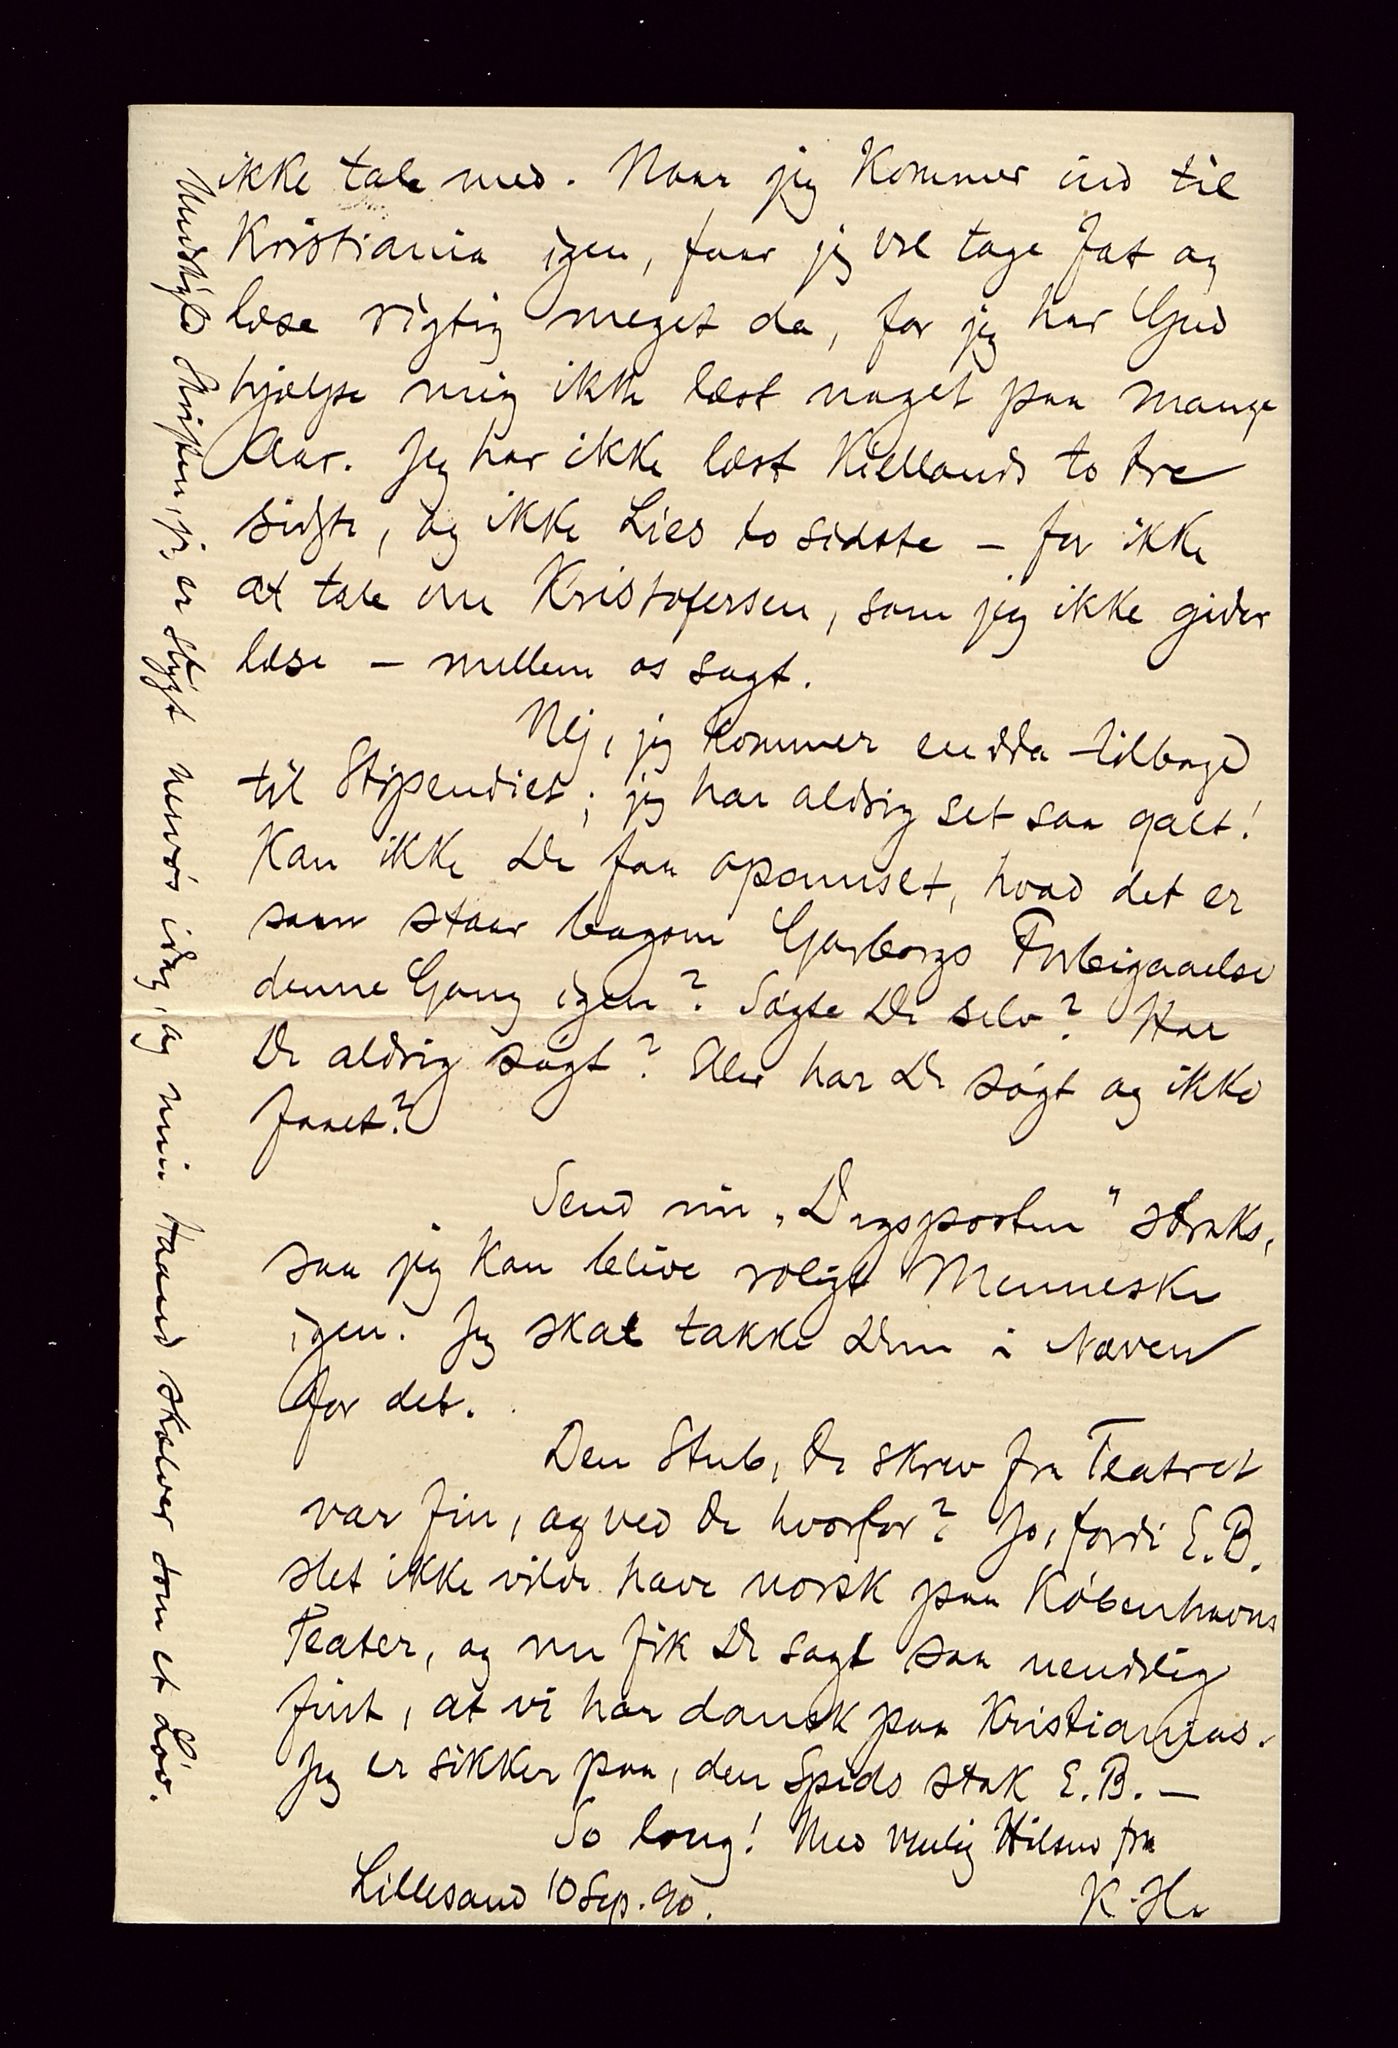 ikke tale med. Naar jeg kommer ind til
Kristiania igen, faar jeg vel tage fat og
læse rigtig meget da, for jeg har Gud
hjælpe mig ikke læst noget paa mange
Aar. Jeg har ikke læst Kiellands to tre
sidste, og ikke Lies to sidste – for ikke
at tale om Kristofersen, som jeg ikke gider
læse – mellem os sagt.
Nej, jeg kommer endda tilbage
til Stipendiet; jeg har aldrig set saa galt!
Kan ikke De faa opsnuset, hvad det er
som staar bagom Garborgs Forbigaaelse
denne Gang igen? Søgte De selv? Har
De aldrig søgt? Eller har De søgt og ikke
faaet?
Send mig „Dagsposten" straks,
saa jeg kan blive roligt Menneske
igen. Jeg skal takke Dem i Næven
for det.
Den Stub, De skrev fra Teatret
var fin, og ved De hvorfor? Jo, fordi E.B.
slet ikke vilde have norsk paa Københavns
Teater, og nu fik De sagt saa uendelig
fint, at vi har dansk paa Kristianias.
Jeg er sikker paa, den Spids stak E.B. –
So long! Med venlig Hilsen fra
Lillesand 10 Sep. 90. K. H.
Undskyld Skriften, jeg er stygt nervøs idag, og min Haand skælver som et Løv.